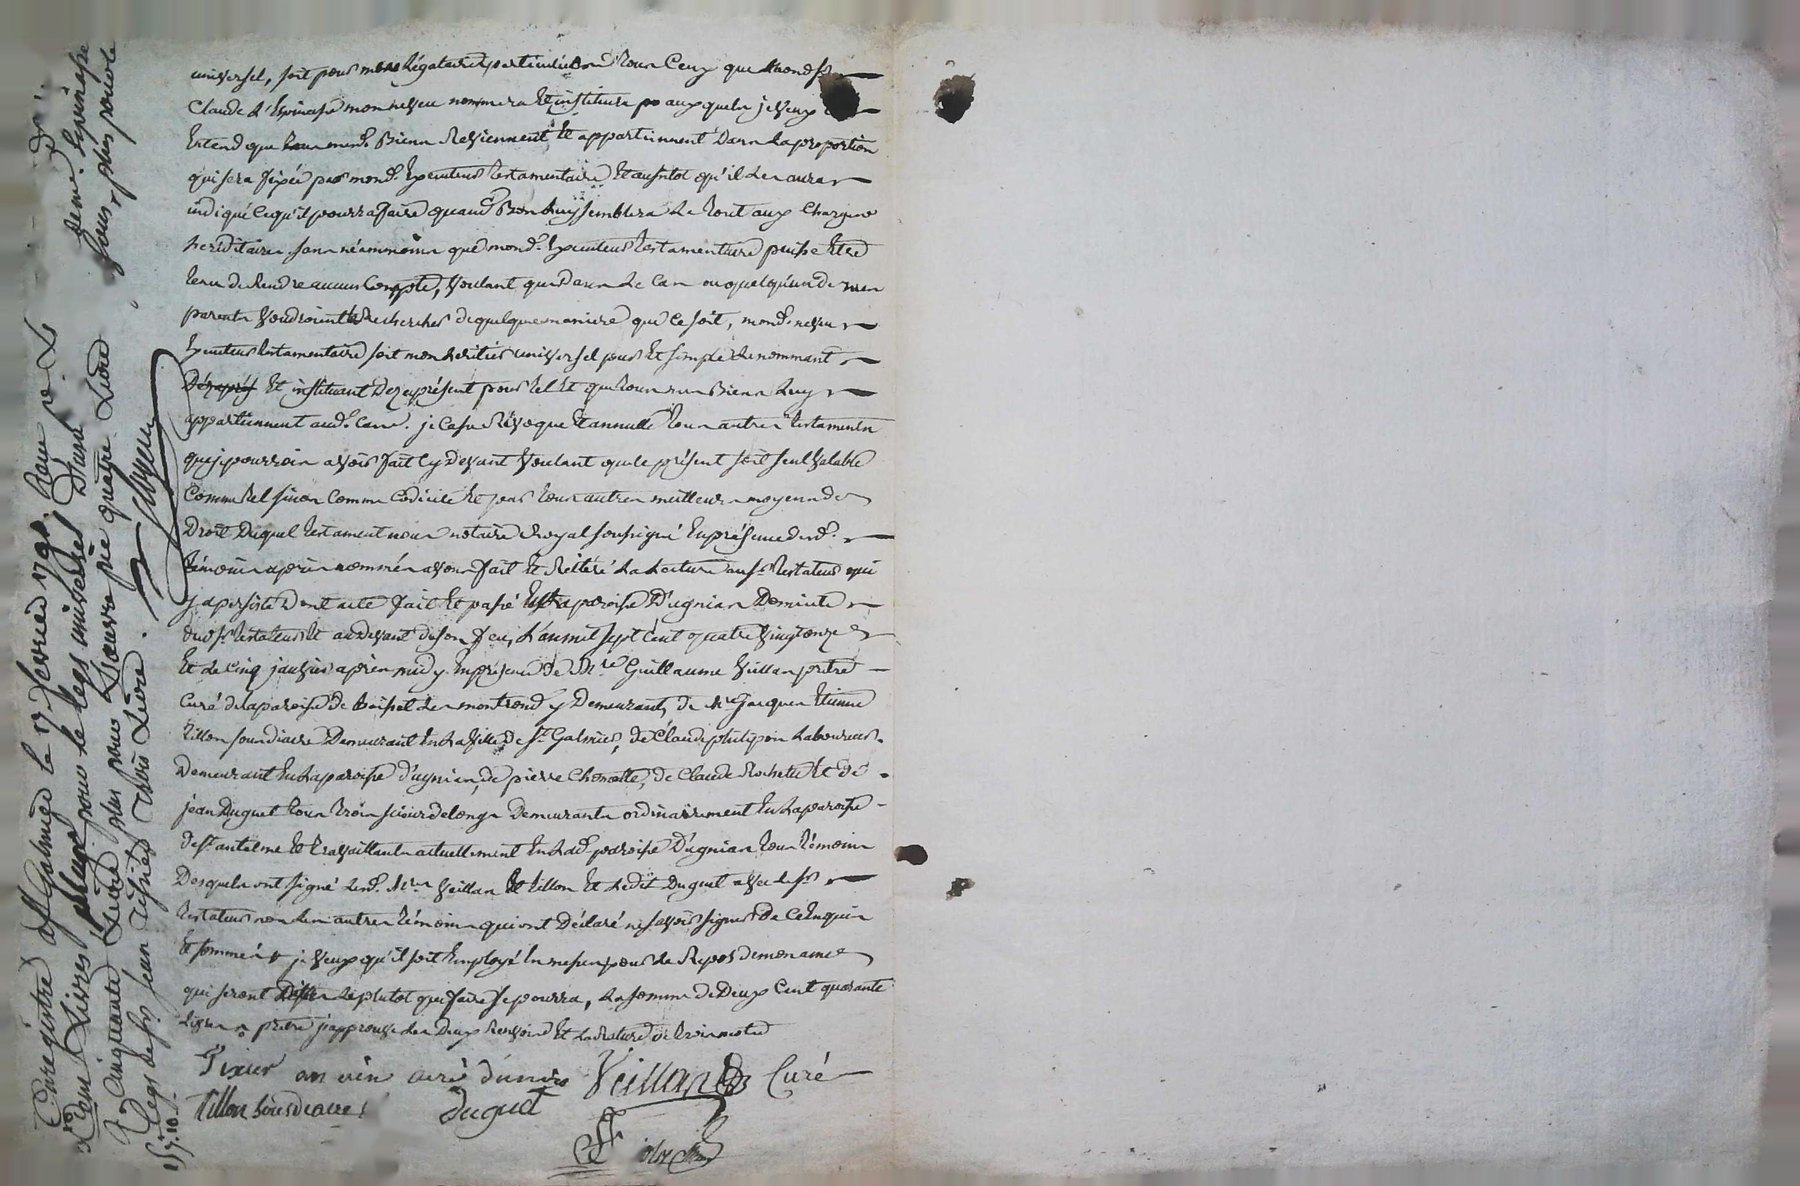 universel, soit pour mes légataires particuliers tous ceux que mond. Sr
Claude Lespinasse mon neveu nommera et instituera auxquels je veux et
entend que mesd. Biens reviennent et appartiennent dans la proportion
qui sera fixée par mond. executeur testamentaire et aussitot qu'il les aura
indiqué ce qu'il pourra faire quand Bon luy semblera le tout aux charges
hereditaires sans néammoins que mond. executeur testamentaire puisse etre
tenu de rendre aucun compte, voulant que dans le cas ou quelqu'un de mes
parents voudroient le rechercher de quelque maniere que ce soit, mond. neveu
executeur testamentaire soit mon heritier universel pur et simple le nommant
et instituant dez aprésent pour tel et que tous mes Biens luy
appartiennent aud. cas. je casse révoque et annulle tous autres testaments
que je pourrois avoir fait cy devant voulant que le présent soit seul valable
comme tel sinon comme codicile et par tous autres meilleurs moyens de
Droit Duquel testament nous notaire Royal soussigné en présence desd.
témoins après nommés avons fait et réitéré la lecture aud. Sr testateur qui
y a persisté dont acte fait et passé en la paroisse D'ugnias Domicile
dud. Sr testateur et au devant de son feu, L'an mil sept cent quatre vingt onze
et le cinq janvier après midy. en présence de Mre Guillaume Veillas prêtre
curé de la paroisse de Boisset les montrond y demeurant, de Mr Jacques Etienne
tillon sousdiacre Demeurant en la ville de St Galmier, de Claude philipon Laboureur
demeurant en la paroisse d'ugnias, de pierre Chomette, de Claude Rochette et de
jean Duguet tous trois scieurs de longs demeurants ordinairement en la paroisse
de St antelme et travaillants actuellement en lad. paroisse d'ugnias tous témoins
Desquels ont signé lesd. Mrs Veillas et tillon et ledit Duguet avec led. Sr
testateur non les autres témoins qui ont Déclaré ne savoir signer de ce enquis
et sommés je veux qu'il soit employé en messes pour le Repos de mon ame
qui seront Dittes le plutot que faire se pourra, la somme de Deux cent quarante
livres prêtre j'approuve les deux renvois et la rature de trois mots
Tixier ancien curé d'unias Veillas Curé
tillon sousdiacre Duguet
Enregistré à St Galmier le 17 fevrier 1791. Reçu
livres pour le legs universel
Cinquante livres plus pour l'œuvre pie quatre livres
legs de Sr jean Trois livres.